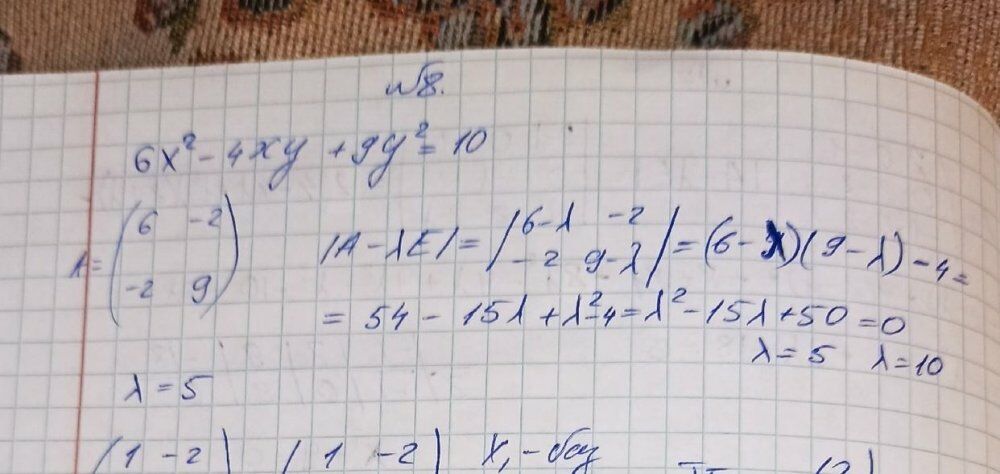 №8.
6x² - 4xy + 9y² = 10
A = (6 -2
-2 9) |A - λE| = |6-λ -2
-2 9-λ| = (6-λ)(9-λ) - 4 =
= 54 - 15λ + λ² - 4 = λ² - 15λ + 50 = 0
λ = 5 λ = 10
λ = 5
(1 -2) (1 -2) X₁ -